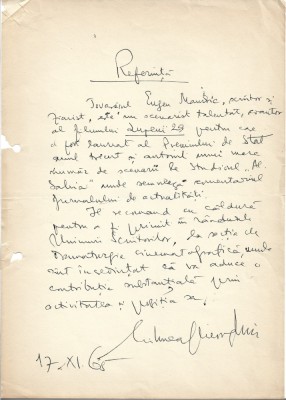 Referință
Tovarășul Eugen Mandric, scriitor și
ziarist, este un scenarist talentat,
al filmului Lupeni 29 pentru care
a fost laureat al Premiului de Stat
anul trecut și autorul unui mare
număr de scenarii la Studioul "Al.
Sahia" unde semnează comentariul
Jurnalului de actualități.
Îl recomand cu căldură
pentru a fi primit în rândurile
Uniunii Scriitorilor, la secția de
Dramaturgie cinematografică, unde
sînt încredințat că va aduce o
contribuție substanțială prin
activitatea și poziția sa.
Mihnea Gheorghiu
17.XI 65